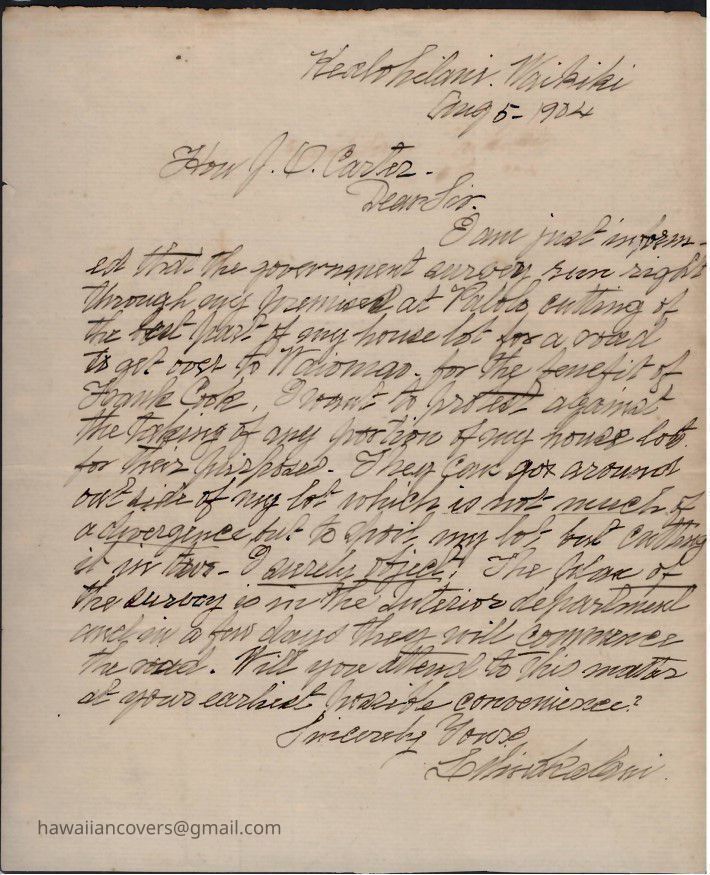 Kealohilani. Waikiki
Aug 5- 1904
Hon J. O. Carter.
Dear Sir.
I am just inform-
ed that the government survey run right
through my premises at Palolo cutting of
the best part of my house lot for a road
to get over to Waiomao. for the benefit of
Frank Cook. I want to protest against
the taking of any portion of my house lot
for their purposes. They can go around
outside of my lot which is not much of
a divergence but to spoil my lot but cutting
it in two- I surely object! The plan of
the survey is in the Interior department
and in a few days they will commence
the road. Will you attend to this matter
at your earliest possible convenience?
Sincerely Yours
Liliuokalani.
hawaiiancovers@gmail.com